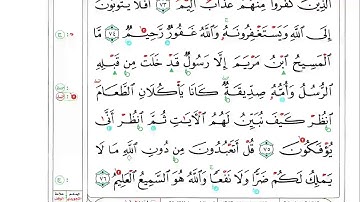 ٱلَّذِينَ كَفَرُوا۟ مِنْهُمْ عَذَابٌ أَلِيمٌ ٧٣ أَفَلَا يَتُوبُونَ
إِلَى ٱللَّهِ وَيَسْتَغْفِرُونَهُۥ وَٱللَّهُ غَفُورٌ رَّحِيمٌ ٧٤ مَّا
ٱلْمَسِيحُ ٱبْنُ مَرْيَمَ إِلَّا رَسُولٌ قَدْ خَلَتْ مِن قَبْلِهِ
ٱلرُّسُلُ وَأُمُّهُۥ صِدِّيقَةٌ كَانَا يَأْكُلَانِ ٱلطَّعَامَ
ٱنظُرْ كَيْفَ نُبَيِّنُ لَهُمُ ٱلْءَايَٰتِ ثُمَّ ٱنظُرْ أَنَّىٰ
يُؤْفَكُونَ ٧٥ قُلْ أَتَعْبُدُونَ مِن دُونِ ٱللَّهِ مَا لَا
يَمْلِكُ لَكُمْ ضَرًّا وَلَا نَفْعًا وَٱللَّهُ هُوَ ٱلسَّمِيعُ ٱلْعَلِيمُ ٧٦